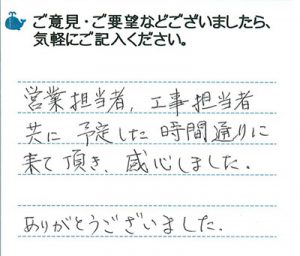 ご意見・ご要望などございましたら、
気軽にご記入ください。
営業担当者, 工事担当者
共に 予定した 時間通りに
来て頂き、感心しました.
ありがとうございました.